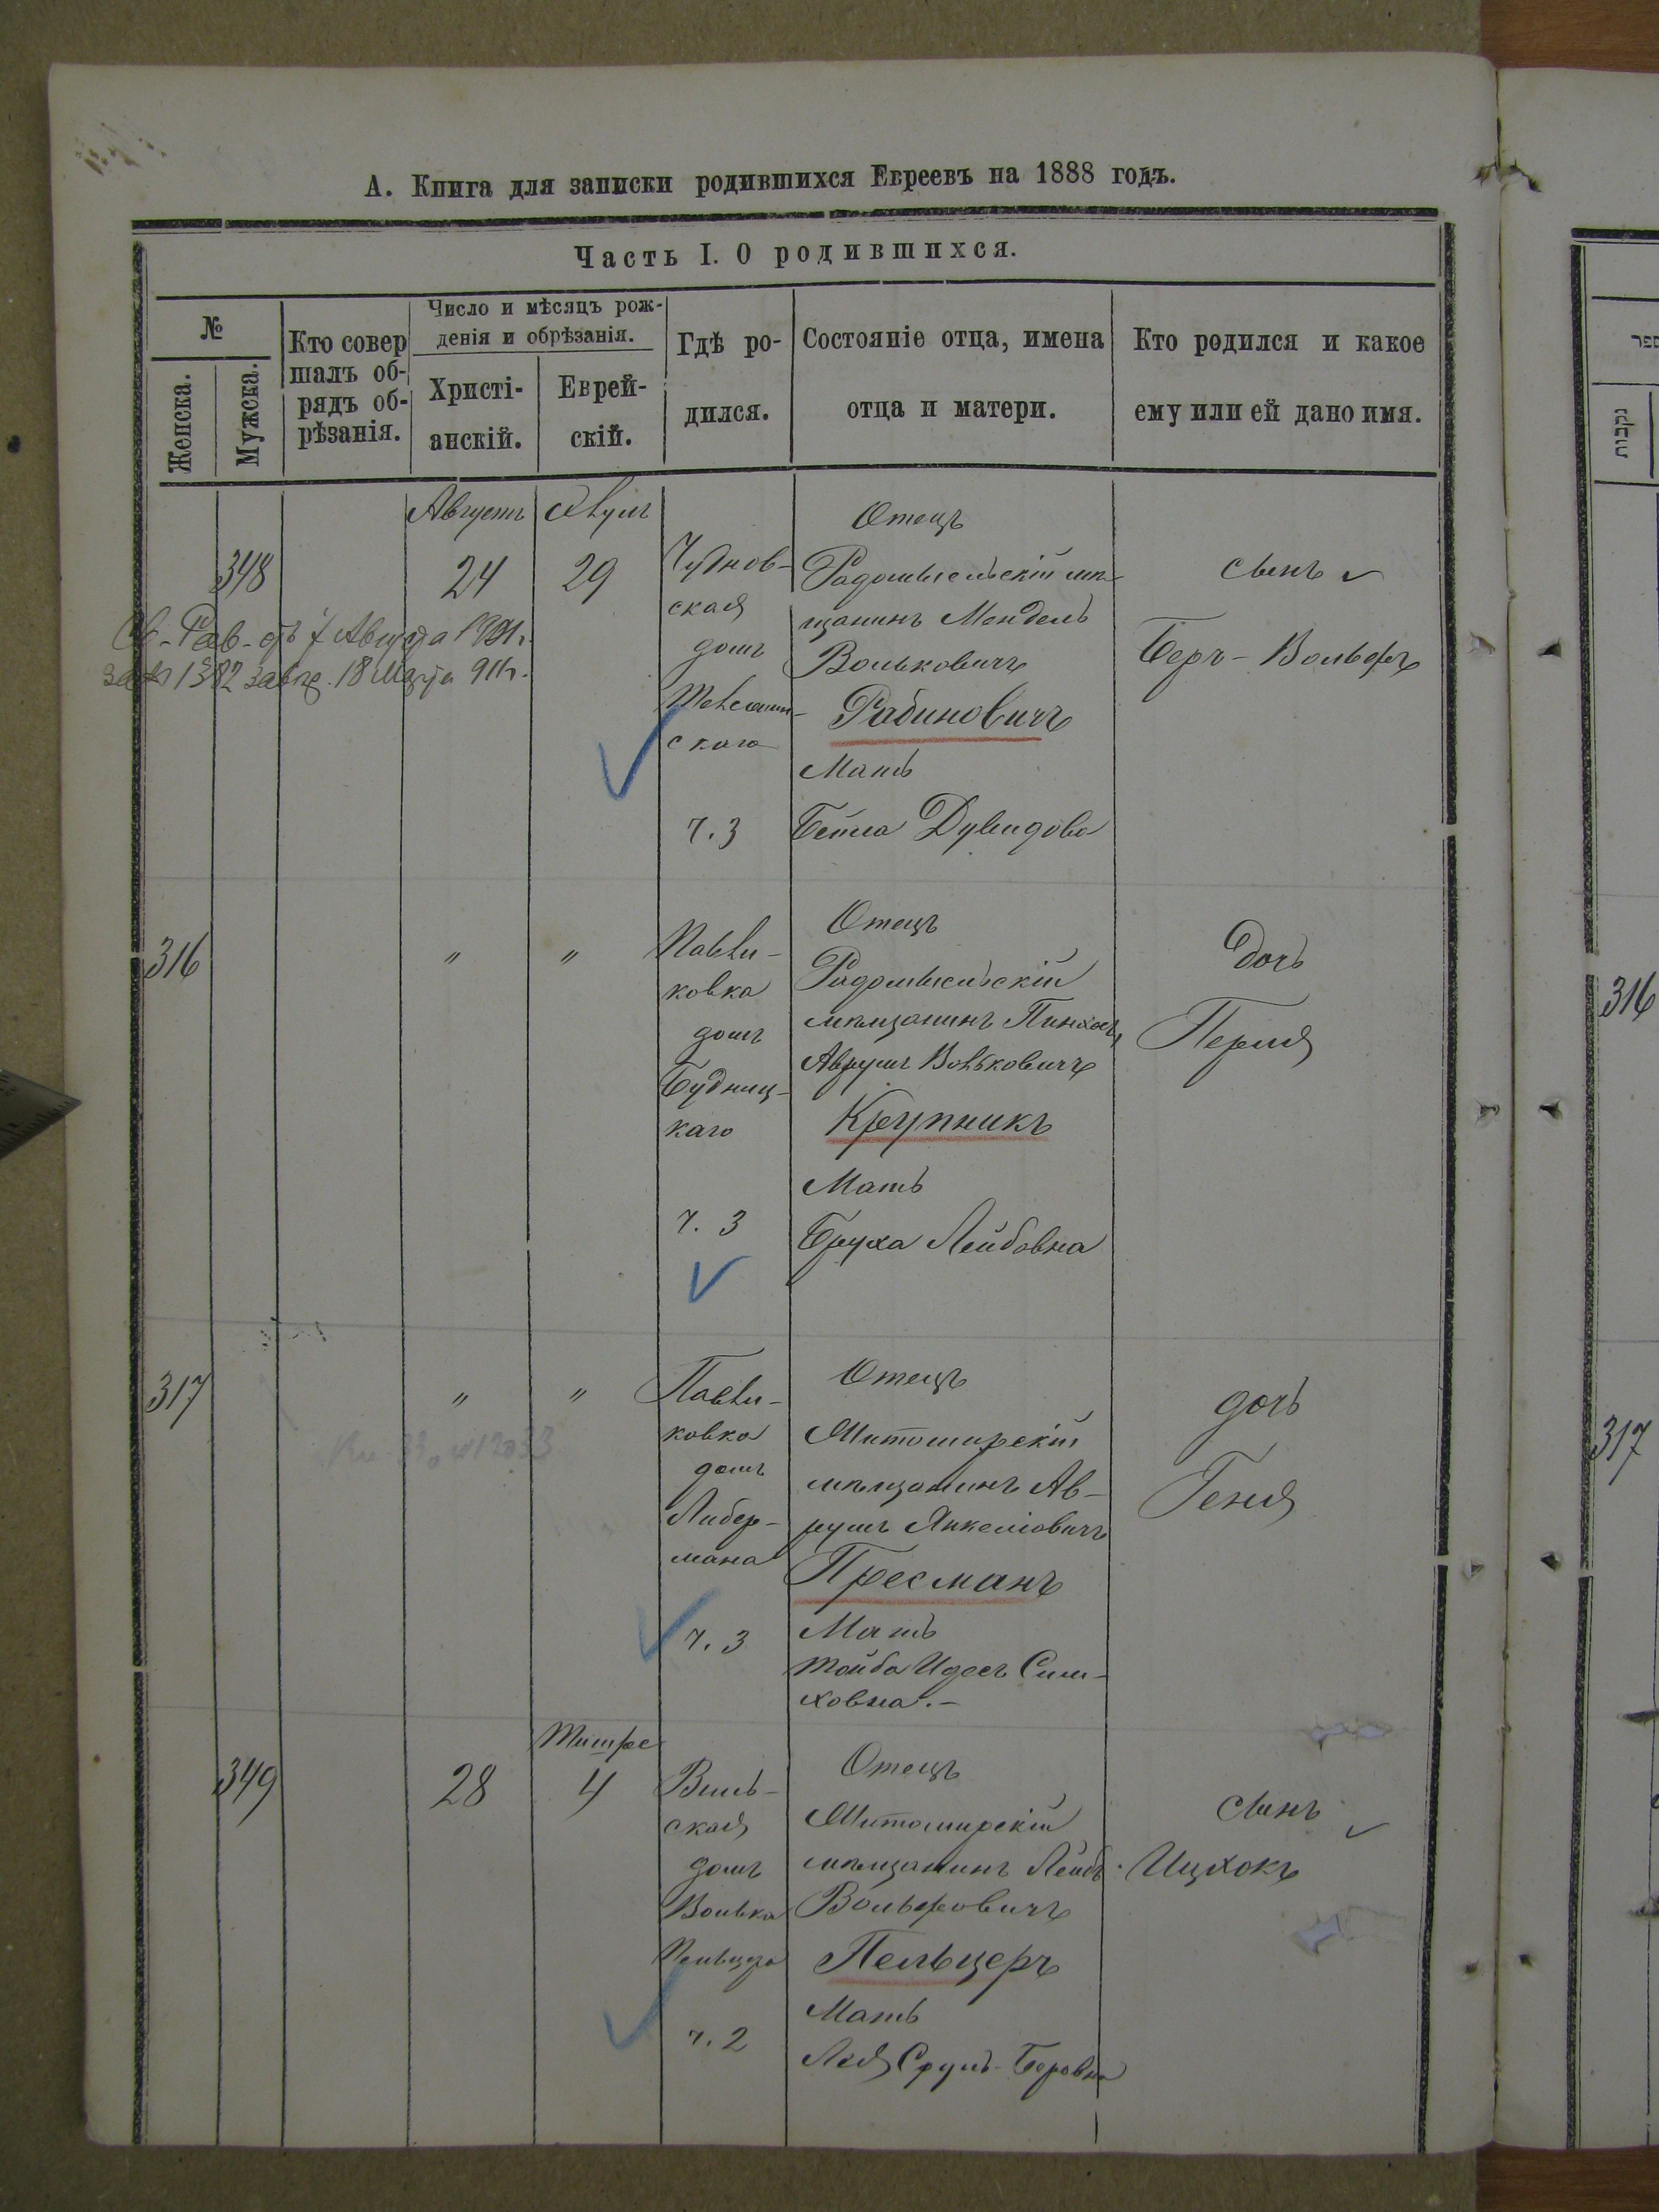 А. Книга для записки родившихся Евреевъ на 1888 годъ.
Часть I. О родившихся.
№
Женска.
Мужска.
Кто совер
шалъ об-
рядъ об-
рѣзанія.
Число и мѣсяцъ рож-
денія и обрѣзанія.
Христі-
анскій.
Еврей-
скій.
Гдѣ ро-
дился.
Состояніе отца, имена
отца и матери.
Кто родился и какое
ему или ей дано имя.
348
Августъ
24
29
Чуднов-
ская
домъ
скаго
ч. 3
Отецъ
Радомысльскій мѣ-
щанинъ Мендель
Вольковичъ
Рабиновичъ
Мать
Бейла
сынъ
Беръ-Вольфъ
316
"
"
Павли-
ковка
домъ
Будниц-
каго
ч. 3
Отецъ
Радомысльскій
мѣщанинъ Пинхосъ
Аврумъ Вольковичъ
Крупникъ
Мать
Бруха Лейбовна
дочь
Перля
317
"
"
Павли-
ковка
домъ
Либер-
мана
ч. 3
Отецъ
Житомирскій
мѣщанинъ Ав-
румъ Янкелiовичъ
Пресманъ
Мать
Тойба Идесъ Сим-
ховна.-
дочь
Геня
349
28
Тишре
4
Виль-
ская
домъ
Волька
Пельцера
ч. 2
Отецъ
Житомирскій
мѣщанинъ Лейбъ
Вольфовичъ
Пельцеръ
Мать
Лея Сруль-Беровна
сынъ
Ицхокъ
ספר
נקבות
316
317